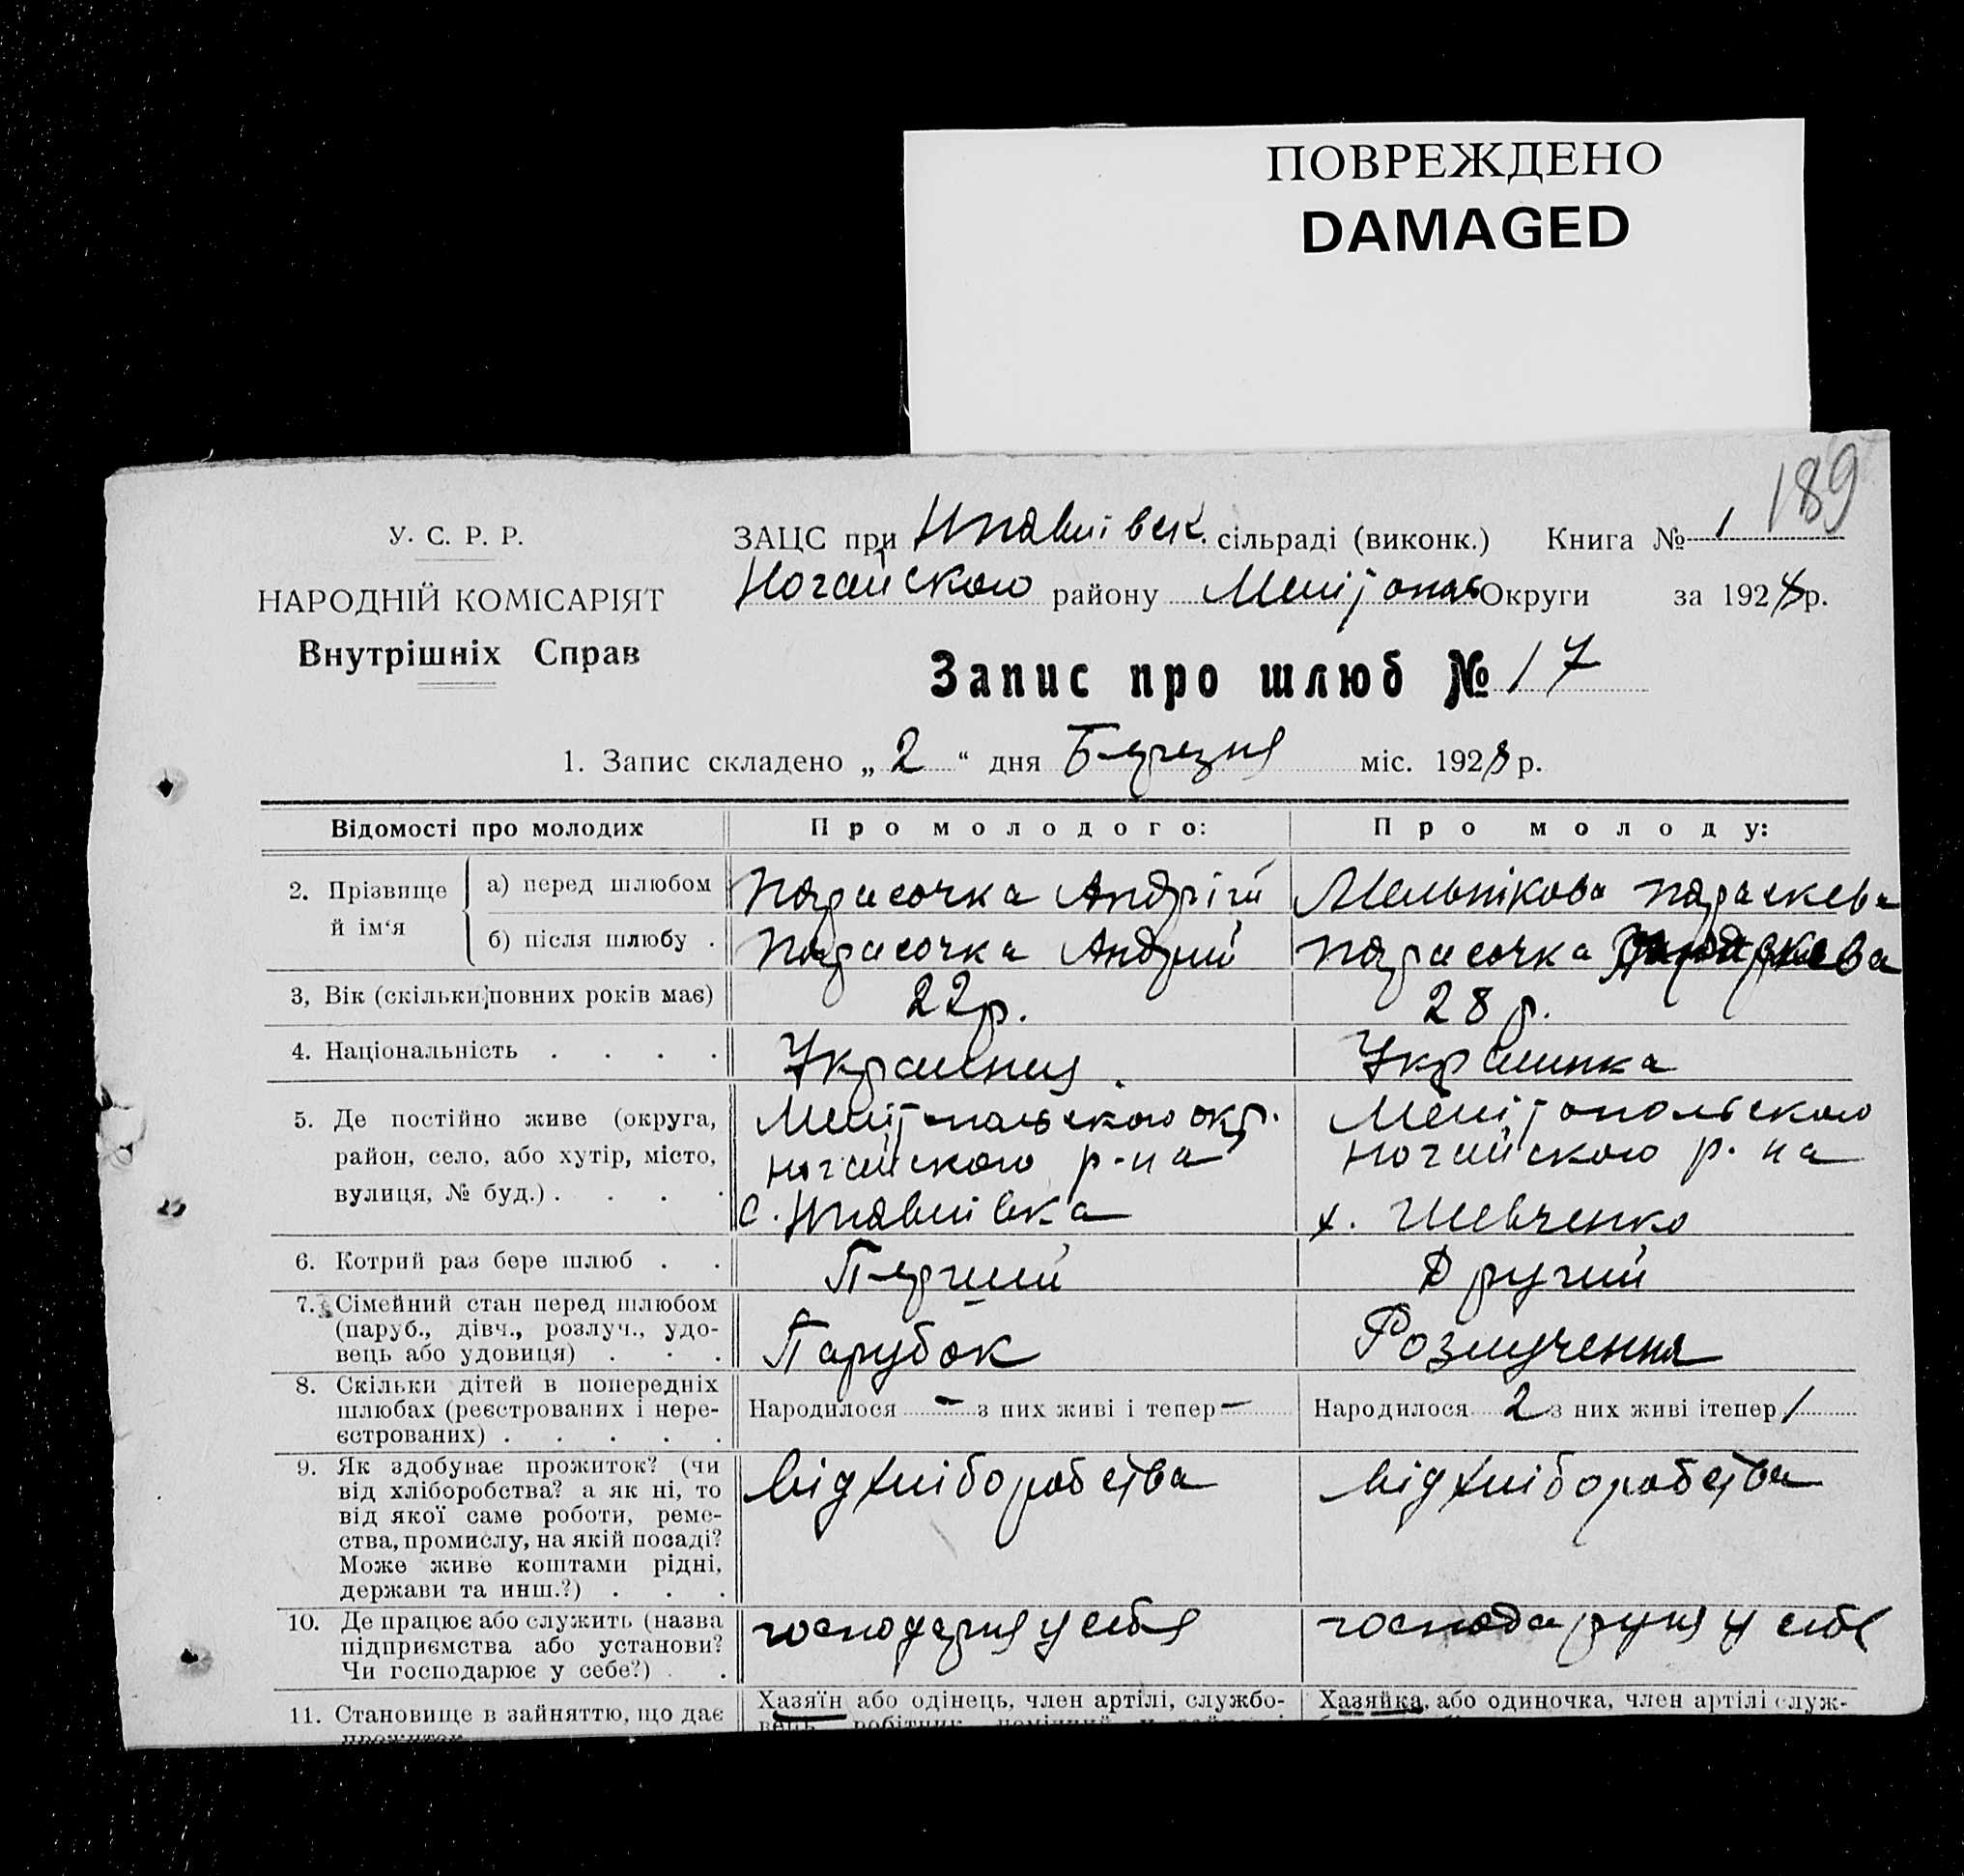 ПОВРЕЖДЕНО
DAMAGED
189
У. С. Р. Р.
НАРОДНІЙ КОМІСАРІЯТ
Внутрішніх Справ
ЗАЦС при сільраді (виконк.) Книга № 1
Ногайского району Округи за 1928 р.
Запис про шлюб № 17
1. Запис складено „ 2 “ дня Березня міс. 1928 р.
Відомості про молодих
Про молодого:
Про молоду:
2. Прізвище й ім‘я
а) перед шлюбом
Парасочка Андрій
Мельнікова Параскева
б) після шлюбу .
Парасочка Андрий
Парасочка Параскева
3, Вік (скільки повних років має)
22р.
28 р.
4. Національність . . . .
Украинец
Украинка
5. Де постійно живе (округа,
район, село, або хутір, місто,
вулиця, № буд.) . . . .
Мелітопольского окр.
Ногайского р-на
с.
Мелітопольского
Ногайского р-на
х. Шевченко
6. Котрий раз бере шлюб . .
Перший
Другий
7. Сімейний стан перед шлюбом
(паруб., дівч., розлуч., удо-
вець або удовиця) . . .
Парубок
Розлучення
8. Скільки дітей в попередніх
шлюбах (реєстрованих і нере-
єстрованих) . . . . .
Народилося - з них живі і тепер -
Народилося 2 з них живі ітепер 1
9. Як здобуває прожиток? (чи
від хліборобства? а як ні, то
від якої саме роботи, реме-
ства, промислу, на якій посаді?
Може живе коштами рідні,
держави та инш.?) . . .
Від хліборобства
Від хліборобства
10. Де працює або служить (назва
підприємства або установи?
Чи господарює у себе?) . .
у себя
у себе
11. Становище в зайняттю, що дає
прожиток
Хазяїн або одінець, член артілі, службо-
вець, робітник,
Хазяйка, або одиночка, член артілі служ-